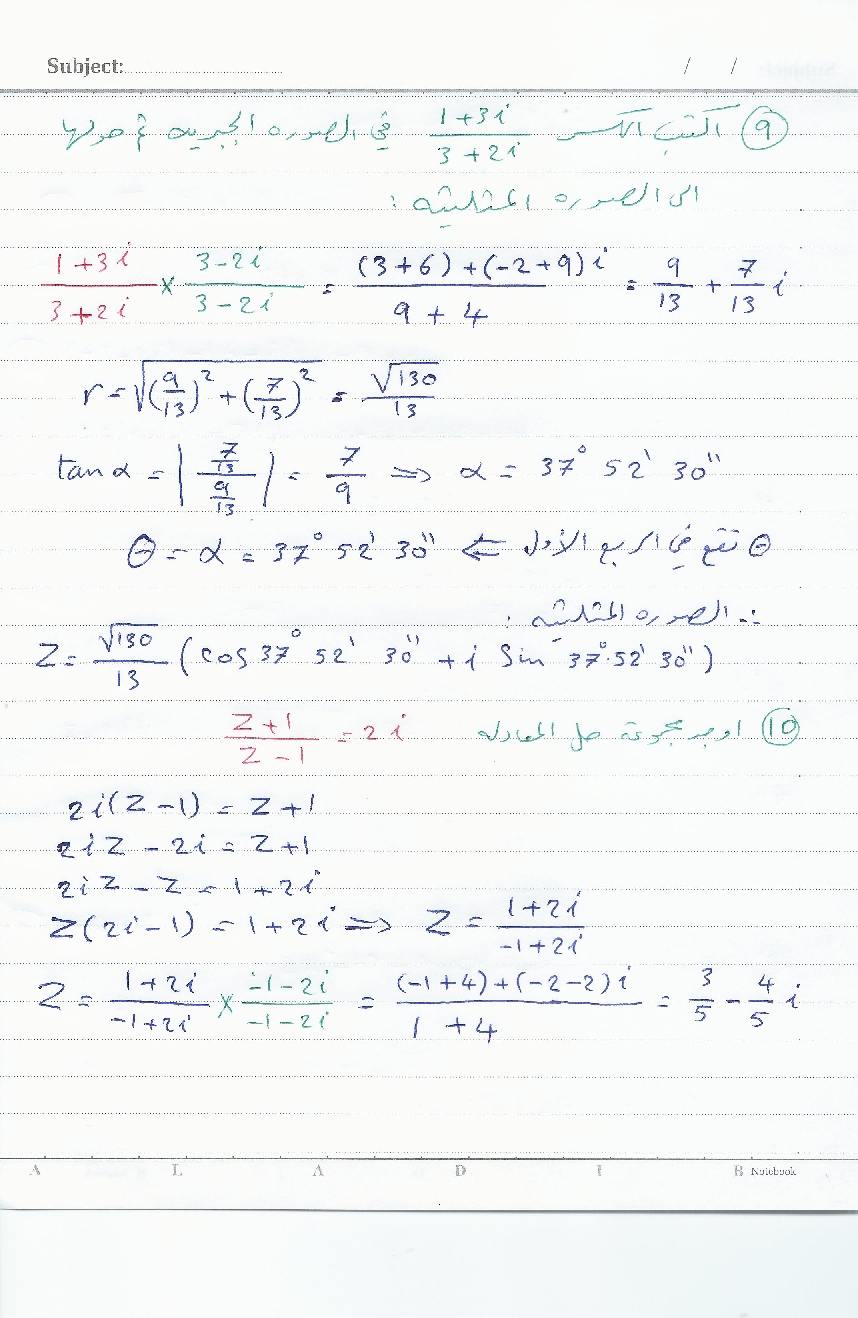 Subject: / /
9 اكتب الكسر (1+3i)/(3+2i) في الصوره الجبريه ثم حولها
الى الصوره المثلثيه :
(1+3i)/(3+2i) × (3-2i)/(3-2i) = ((3+6)+(-2+9)i)/(9+4) = 9/13 + 7/13 i
r = √((9/13)² + (7/13)²) = √130/13
tan α = |(7/13)/(9/13)| = 7/9 ⇒ α = 37° 52' 30"
θ تقع في الربع الأول ⇐ θ = α = 37° 52' 30"
∴ الصوره المثلثيه :
Z = √130/13 (cos 37° 52' 30" + i Sin 37° 52' 30")
10 اوجد مجموعة حل المعادله (Z+1)/(Z-1) = 2i
2i(Z-1) = Z+1
2iZ - 2i = Z+1
2iZ - Z = 1+2i
Z(2i-1) = 1+2i ⇒ Z = (1+2i)/(-1+2i)
Z = (1+2i)/(-1+2i) × (-1-2i)/(-1-2i) = ((-1+4)+(-2-2)i)/(1+4) = 3/5 - 4/5 i
A L A D I B Notebook